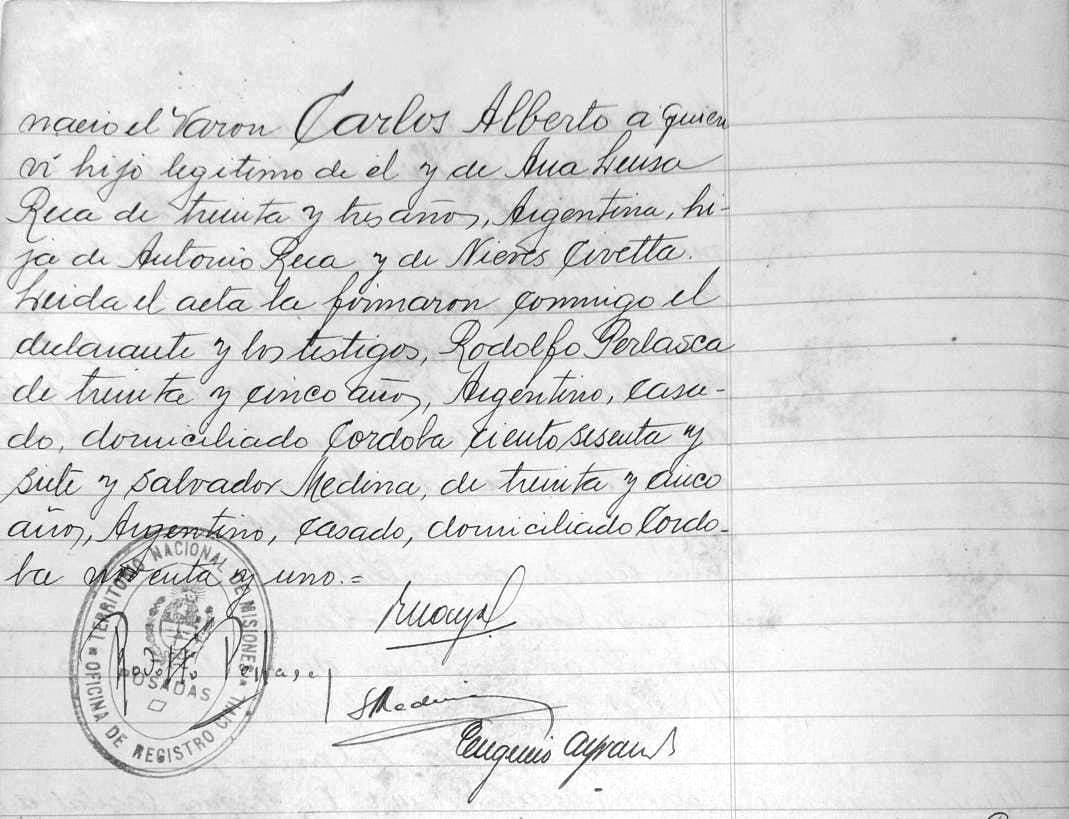 nacio el Varon Carlos Alberto a quien
vi hijo legitimo de el y de Ana Luisa
Reca de treinta y tres años, Argentina, hi-
ja de Antonio Reca y de Nieves Civetta.
Leida el acta la firmaron conmigo el
declarante y los testigos, Rodolfo Perlasca
de treinta y cinco años, Argentino, casa-
do, domiciliado Cordoba ciento sesenta y
siete y Salvador Medina, de treinta y cinco
años, Argentino, casado, domiciliado Cordo-
ba noventa y uno.=
TERRITORIO NACIONAL DE MISIONES
POSADAS
OFICINA DE REGISTRO CIVIL
SMedina
Eugenio